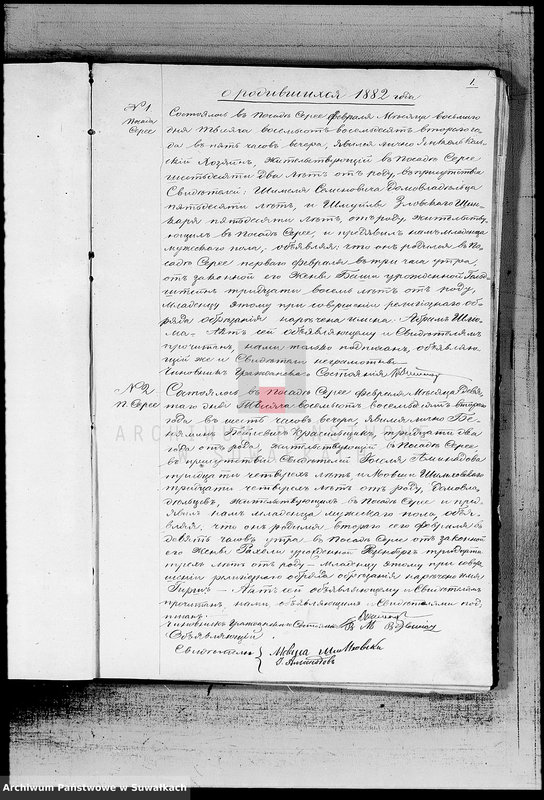 1.
о родившихся 1882 года
№ 1
Посада
Серее
Состоялось въ Посадѣ Серее Февраля Мѣсяца восьмаго
дня тысяча восемьсотъ восемьдесятъ втораго го
да въ пять часовъ вечера, явился лично
Хозяинъ, жительствующій въ Посадѣ Серее
шестидесяти два лѣтъ отъ роду, въ присутствіи
Свидѣтелей: Шимеля Семеновича Домовладѣльца
пятидесяти лѣтъ, и Шмуйлы Шин
каря пятидесяти лѣтъ, отъ роду, жительству
ющихъ въ Посадѣ Серее, и предъявилъ намъ младенца
мужескаго пола, объявляя, что онъ родился въ По
садѣ Серее перваго Февраля въ три часа утра,
отъ законной его жены Бейлы урожденной
тридцати восемь лѣтъ отъ роду,
Младенцу этому при совершеніи религіознаго об
ряда обрѣзанія наречены имена Абрамъ Шлю
ма. Актъ сей объявляющему и Свидѣтелямъ
прочитанъ, нами только подписанъ, объявляю
щій же и Свидѣтели неграмотны
Чиновникъ Гражданскаго Состоянія
№ 2
П. Серее
Состоялось въ Посадѣ Серее Февраля Мѣсяца девя
таго дня тысяча восемьсотъ восемьдесятъ втораго
года въ шесть часовъ вечера, явился лично Бе
няминъ Красильщикъ, тридцати два
года отъ роду, жительствующій въ Посадѣ Серее
въ присутствіи Свидѣтелей Аминадова
тридцати четверехъ лѣтъ и Мовши
тридцати четверехъ лѣтъ отъ роду, Домовла
дѣльцевъ, жительствующихъ въ Посадѣ Серее и пред
явилъ намъ младенца мужескаго пола, объя
вляя, что онъ родился втораго сего Февраля въ
девять часовъ утра въ Посадѣ Серее отъ законной
его жены Рахели урожденной тридцати
трехъ лѣтъ отъ роду — Младенцу этому при совер
шеніи религіознаго обряда обрѣзанія наречено имя
Гиршъ — Актъ сей объявляющему и Свидѣтелямъ
прочитанъ, нами, объявляющимъ и Свидѣтелями под
писанъ.
Чиновникъ Гражданскаго Состоянія
Объявляющій
Свидѣтели
Мовша
Аминадовъ
Archiwum Państwowe w Suwałkach